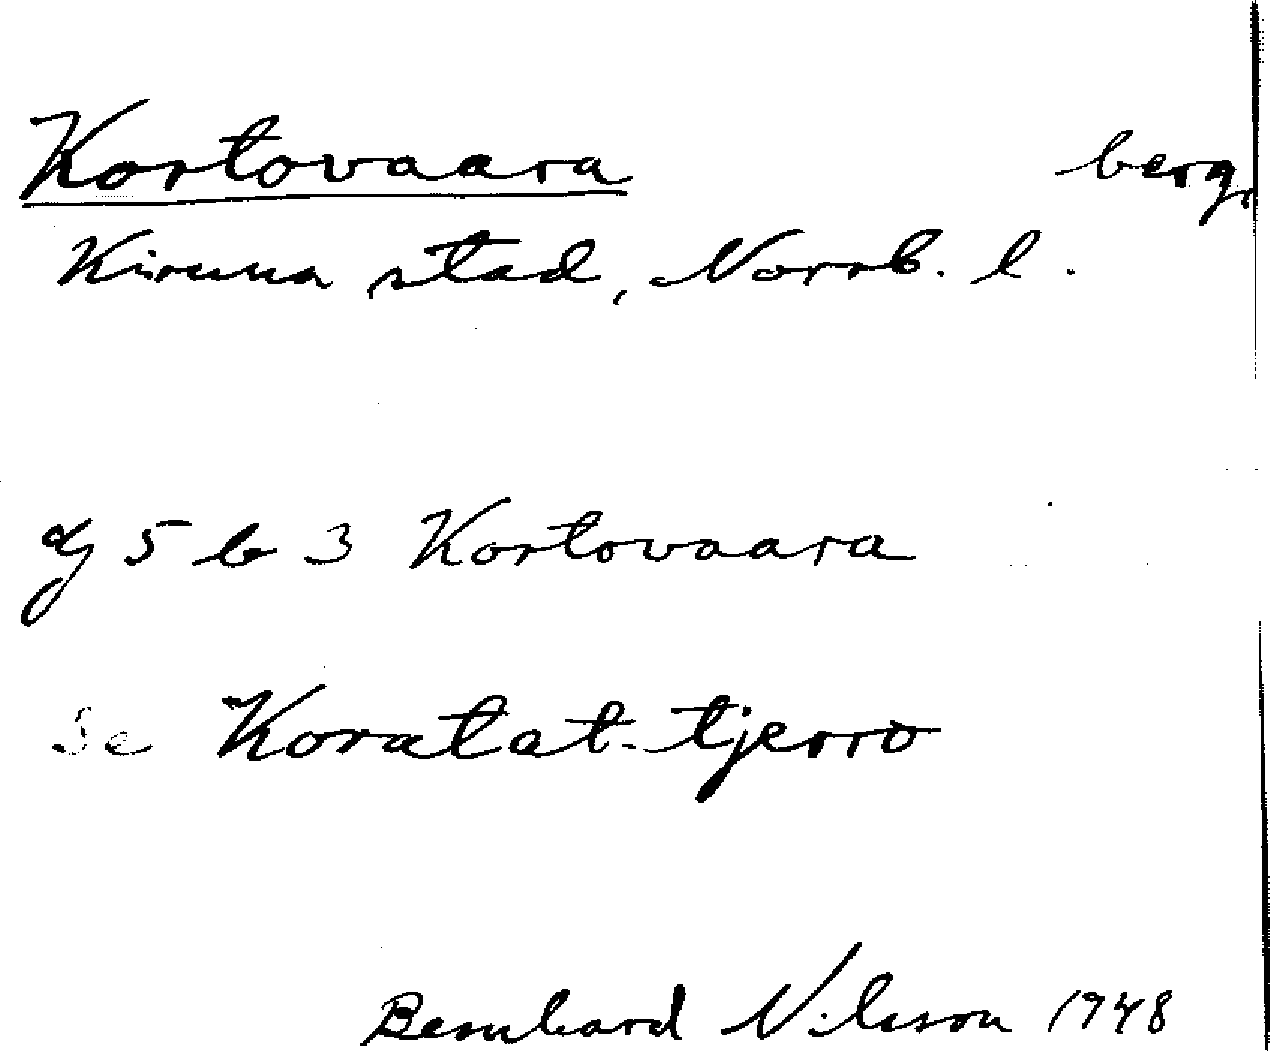 Kortovaara berg,
Kiruna stad, Norrb. l.
5 b 3 Kortovaara
Se Koratat-tjerro
Bernhard Nilsson 1948